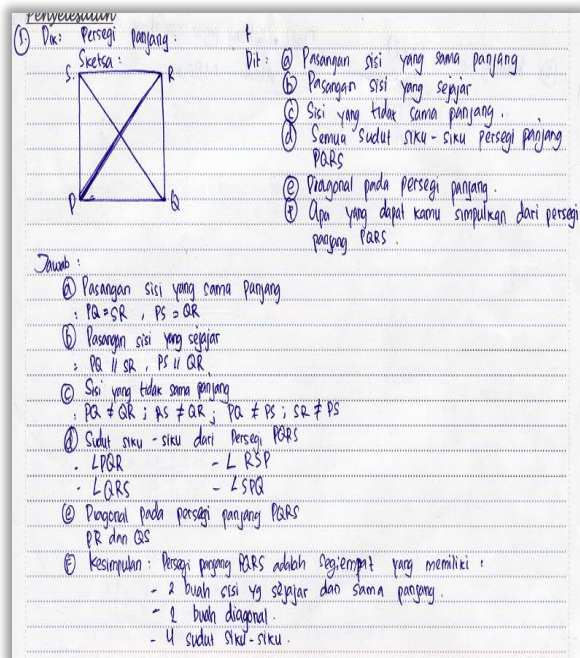 Penyelesaian
① Dik: Persegi panjang.
Sketsa:
S R
P Q
Dit: ⓐ Pasangan sisi yang sama panjang
ⓑ Pasangan sisi yang sejajar
ⓒ Sisi yang tidak sama panjang.
ⓓ Semua sudut siku-siku persegi panjang
PQRS
ⓔ Diagonal pada persegi panjang.
ⓕ Apa yang dapat kamu simpulkan dari persegi
panjang PQRS.
Jawab:
ⓐ Pasangan sisi yang sama panjang
: PQ = SR, PS = QR
ⓑ Pasangan sisi yang sejajar
: PQ // SR, PS // QR
ⓒ Sisi yang tidak sama panjang
: PQ ≠ QR; RS ≠ QR; PQ ≠ PS; SR ≠ PS
ⓓ Sudut siku-siku dari Persegi PQRS
- ∠PQR - ∠RSP
- ∠QRS - ∠SPQ
ⓔ Diagonal pada persegi panjang PQRS
PR dan QS
ⓕ Kesimpulan: Persegi panjang PQRS adalah segiempat yang memiliki:
- 2 buah sisi yg sejajar dan sama panjang.
- 2 buah diagonal.
- 4 sudut siku-siku.